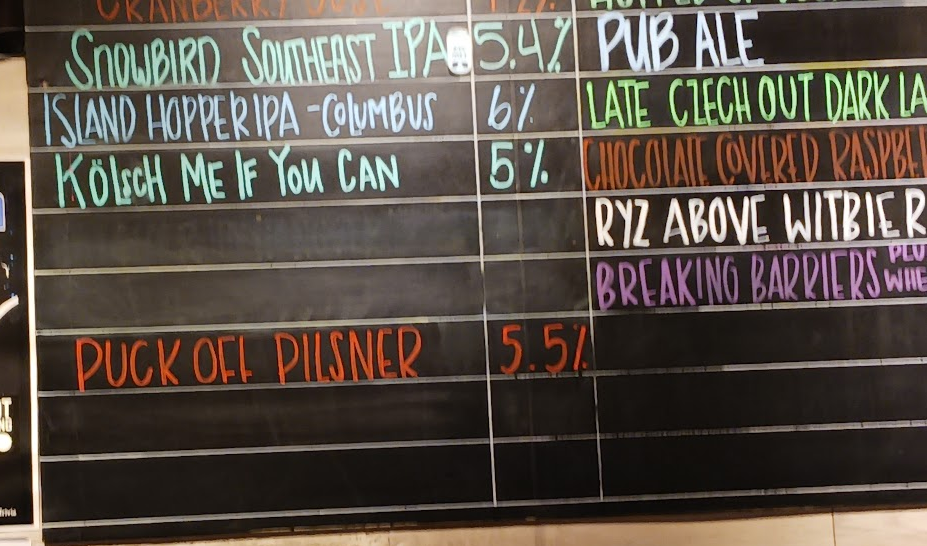 CRANBERRY GOSE
SNOWBIRD SOUTHEAST IPA 5.4%
ISLAND HOPPER IPA - COLUMBUS 6%
KÖLSCH ME IF YOU CAN 5%
PUCK OFF PILSNER 5.5%
PUB ALE
LATE CZECH OUT DARK LA
CHOCOLATE COVERED RASPBE
RYZ ABOVE WITBIER
BREAKING BARRIERS
WHE